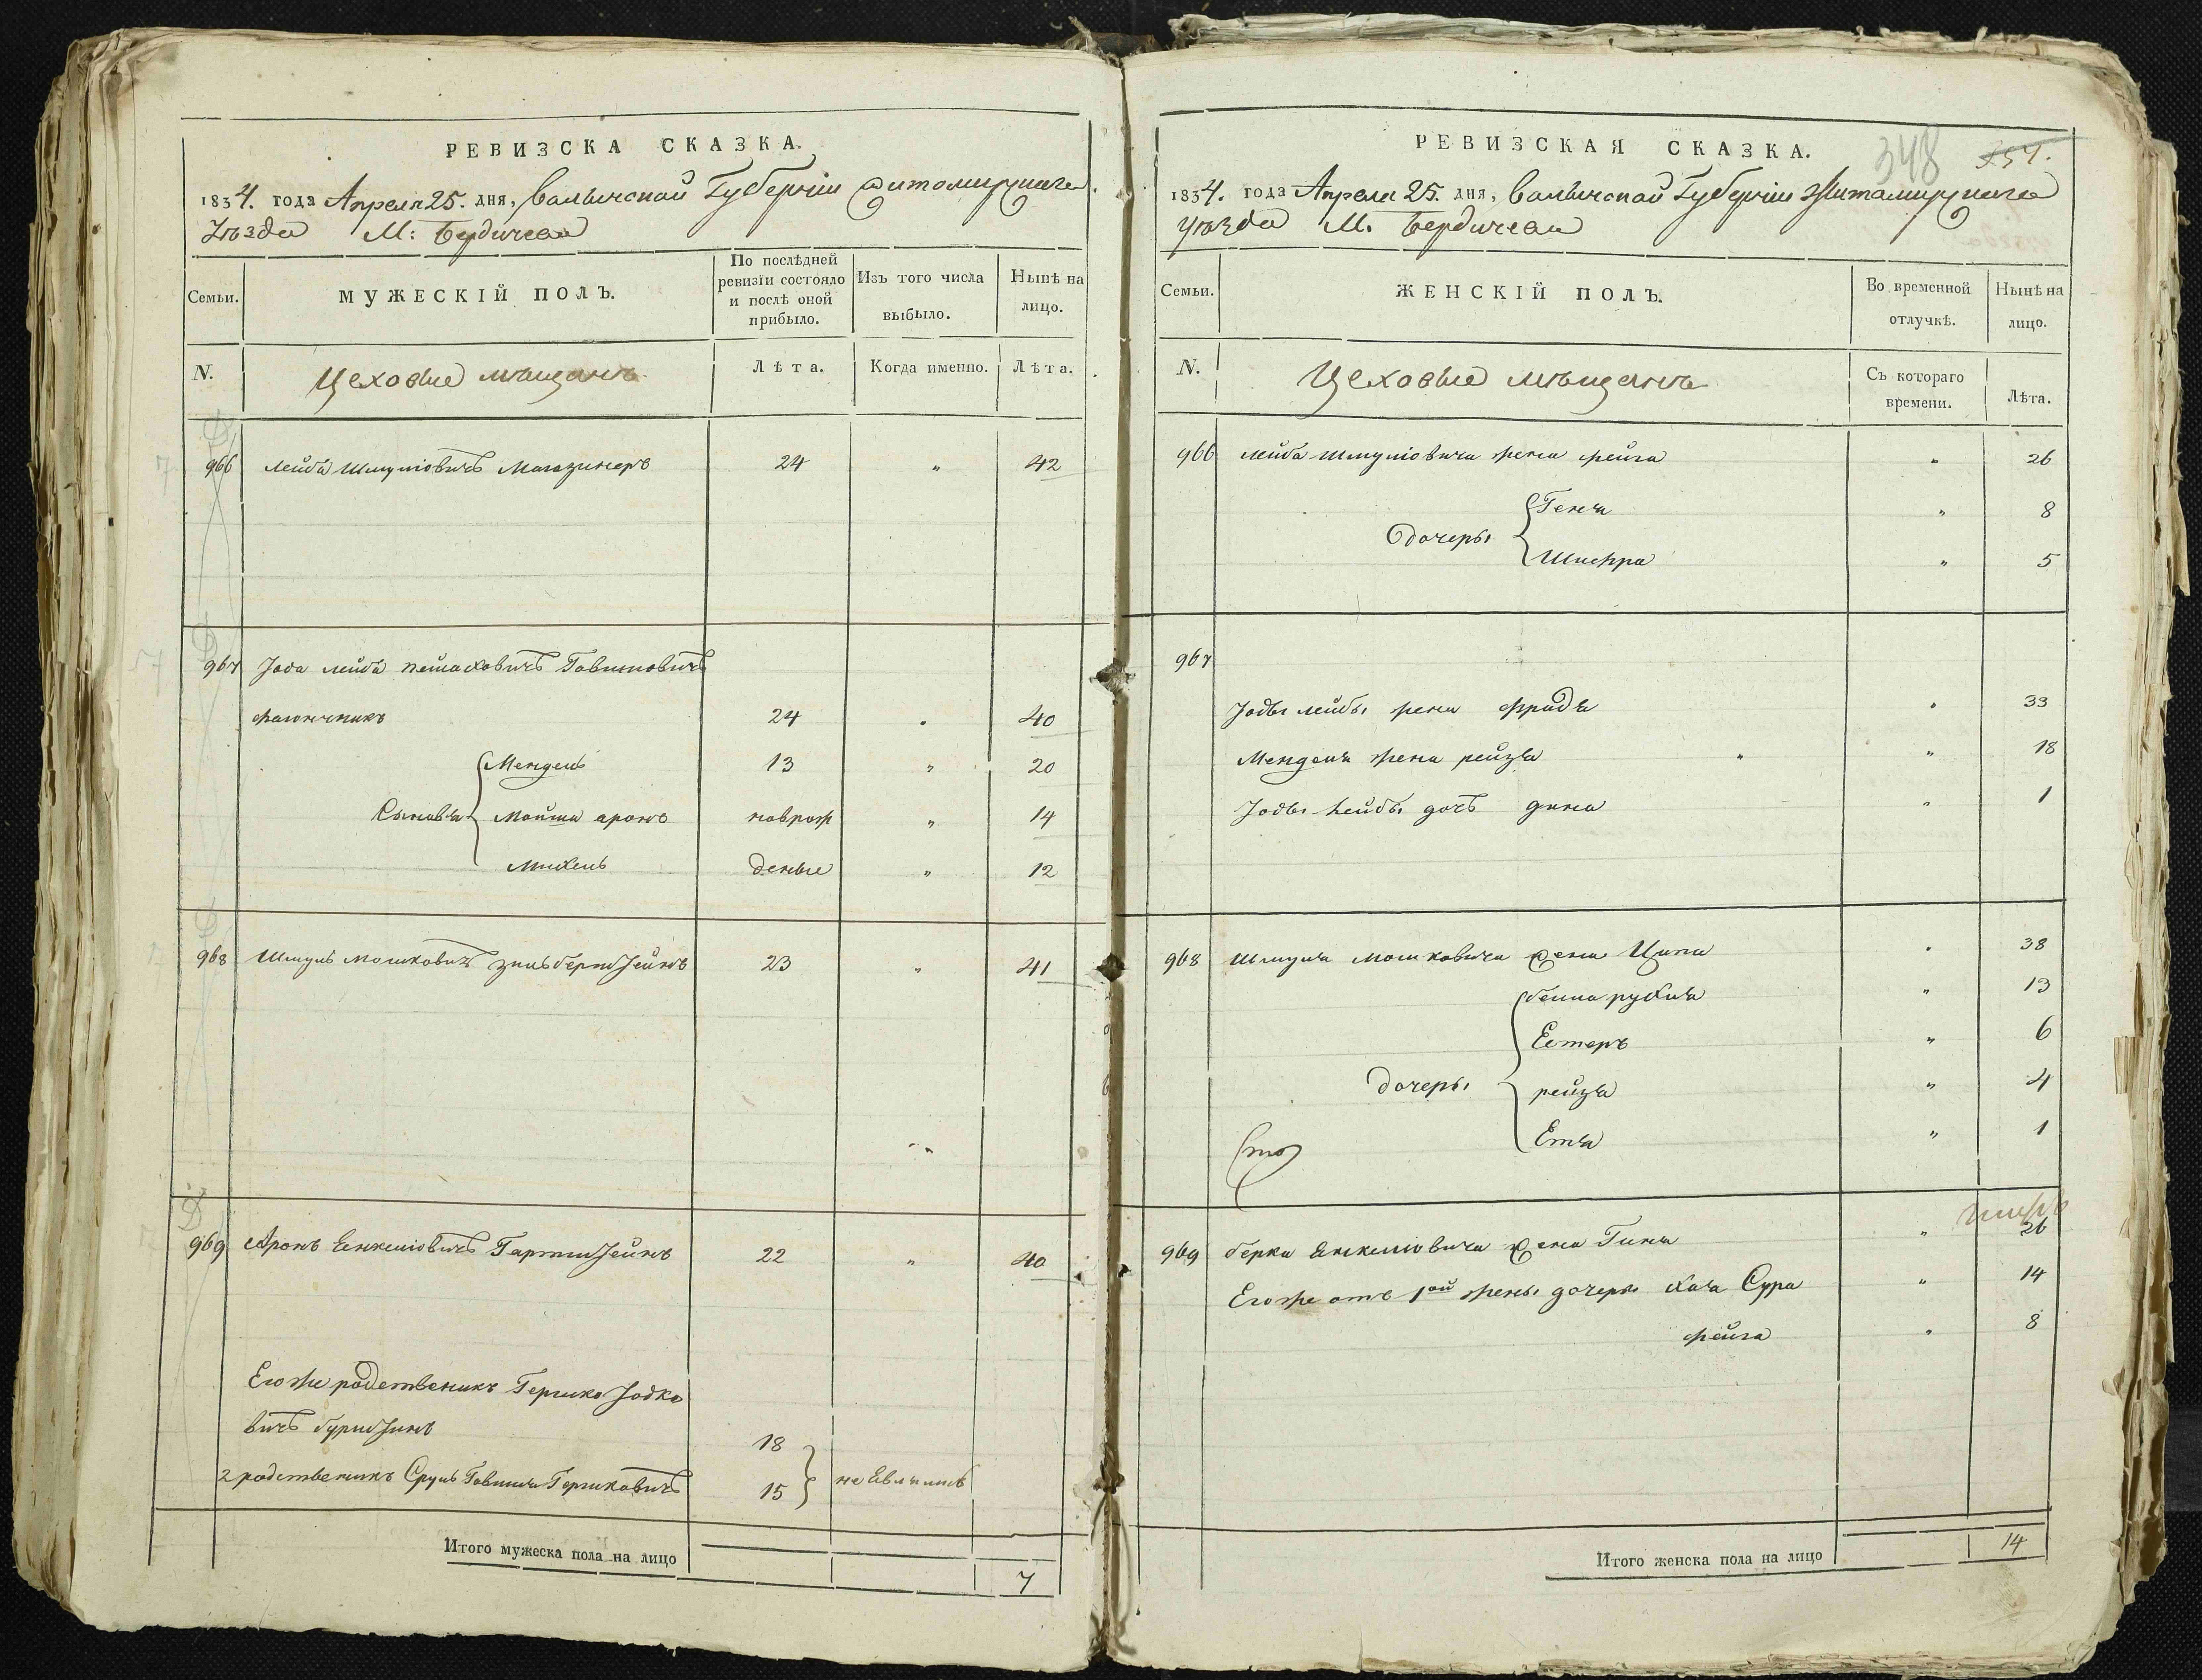 РЕВИЗСКА СКАЗКА.
1834. года Апреля 25. дня, Волынской Губернии Житомирского
Уѣзда М: Бердичева
Семьи.
МУЖЕСКІЙ ПОЛЪ.
По послѣдней ревизіи состояло и послѣ оной прибыло.
Изъ того числа выбыло.
Нынѣ на лицо.
N.
Цеховые мѣщане
Лѣта.
Когда именно.
Лѣта.
966 Лейба Шмулiовичъ Магазинеръ 24 " 42
967 Іода лейба пейсаховичъ Говшиовичъ
24 " 40
Сыновья
Мендель 13 " 20
Мойша аронъ новрож " 14
Михель деные " 12
968 Шмуль Мошковичъ Зильберштейнъ 23 " 41
969 Аронъ Енкелiовичъ Гартштейнъ 22 " 40
Егоже родственикъ Гершко Іодко
вичъ 18
2 родственикъ Сруль Гершковичъ 15
не Явились
Итого мужеска пола на лицо 7
РЕВИЗСКАЯ СКАЗКА.
348 354.
1834. года Апреля 25. дня, Волынской Губернии Житомирского
уѣзда М. Бердичева
Семьи.
ЖЕНСКІЙ ПОЛЪ.
Во временной отлучкѣ.
Нынѣ на лицо.
N.
Цеховые мѣщане
Съ котораго времени.
Лѣта.
966 Лейба Шмулiовича жена фейга " 26
Дочеры
Геня " 8
Шифра " 5
967
Іоды лейбы жена фрида " 33
Менделя жена рейзя " 18
Іоды Лейбы дочъ дина " 1
968 Шмуля Мошковича жена Ципа " 38
Дочеры
бейла рухля " 13
Естеръ " 6
рейзя " 4
Етя " 1
969 берка Енкелiовича жена Гиня " 26
Егоже отъ 1ой жены дочеры Хая Сура " 14
фейга " 8
Итого женска пола на лицо 14